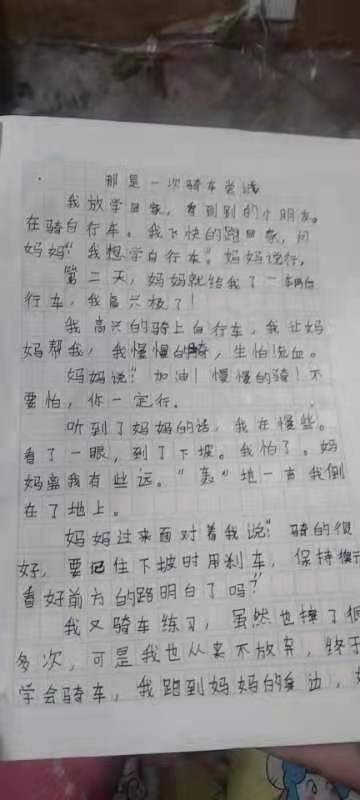 那是一次骑车尝试
我放学回家，看到别的小朋友。
在骑自行车。我飞快的跑回家，问
妈妈“我想学自行车。妈妈说行，
第二天，妈妈就给我了一辆自
行车，我高兴极了！
我高兴的骑上自行车，我让妈
妈帮我，我慢慢的骑，生怕流血。
妈妈说“加油！慢慢的骑！不
要怕，你一定行.
听到了妈妈的话，我在慢些。
看了一眼，到了下坡。我怕了。妈
妈离我有些远。“轰”地一声我倒
在了地上。
妈妈过来面对着我说“骑的很
好，要记住下坡时用刹车，保持
看好前方的路明白了吗？”
我又骑车练习，虽然也摔了很
多次，可是我也从来不放弃，终于
学会骑车，我跑到妈妈的身边，